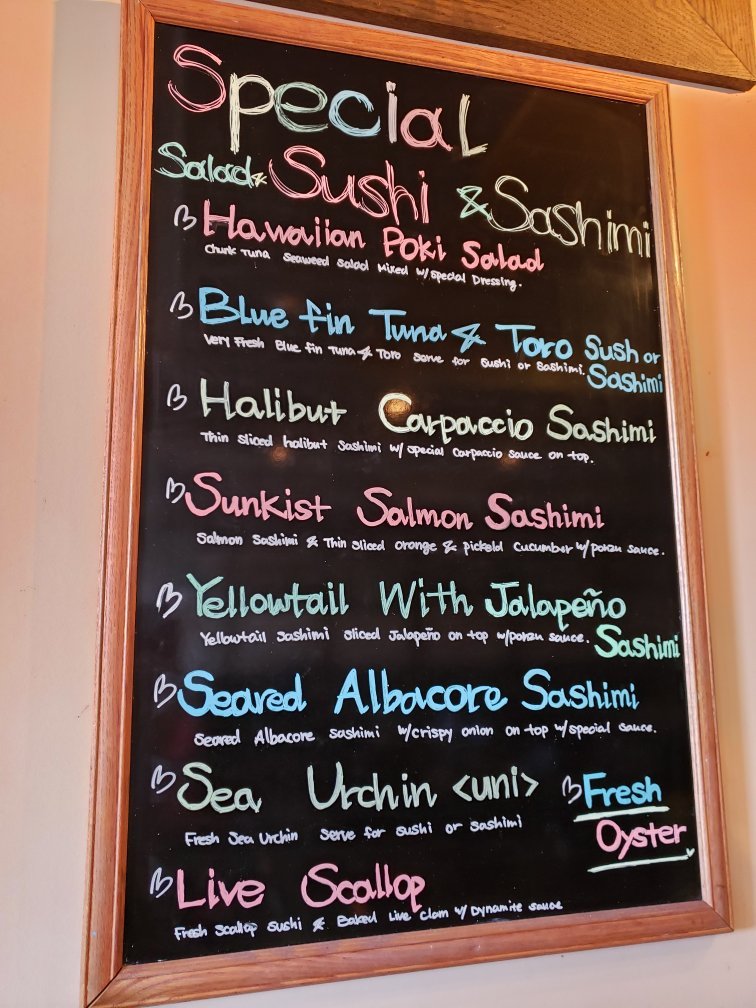 Special
Salad & Sushi & Sashimi
Hawaiian Poki Salad
Chunk Tuna Seaweed Salad Mixed w/special Dressing.
Blue fin Tuna & Toro Sush or
Sashimi
Very Fresh Blue fin Tuna & Toro serve for Sushi or Sashimi.
Halibut Carpaccio Sashimi
Thin sliced halibut Sashimi w/ special Carpaccio sauce on top.
Sunkist Salmon Sashimi
Salmon Sashimi & Thin sliced orange & pickeld Cucumber w/ponzu sauce.
Yellowtail With Jalapeño
Sashimi
Yellowtail sashimi sliced Jalapeño on top w/ponzu sauce.
Seared Albacore Sashimi
Seared Albacore sashimi w/crispy onion on top w/special sauce.
Sea Urchin <uni>
Fresh Sea Urchin serve for sushi or sashimi
Fresh
Oyster
Live Scallop
Fresh Scallop sushi & Baked Live clam w/ Dynamite sauce